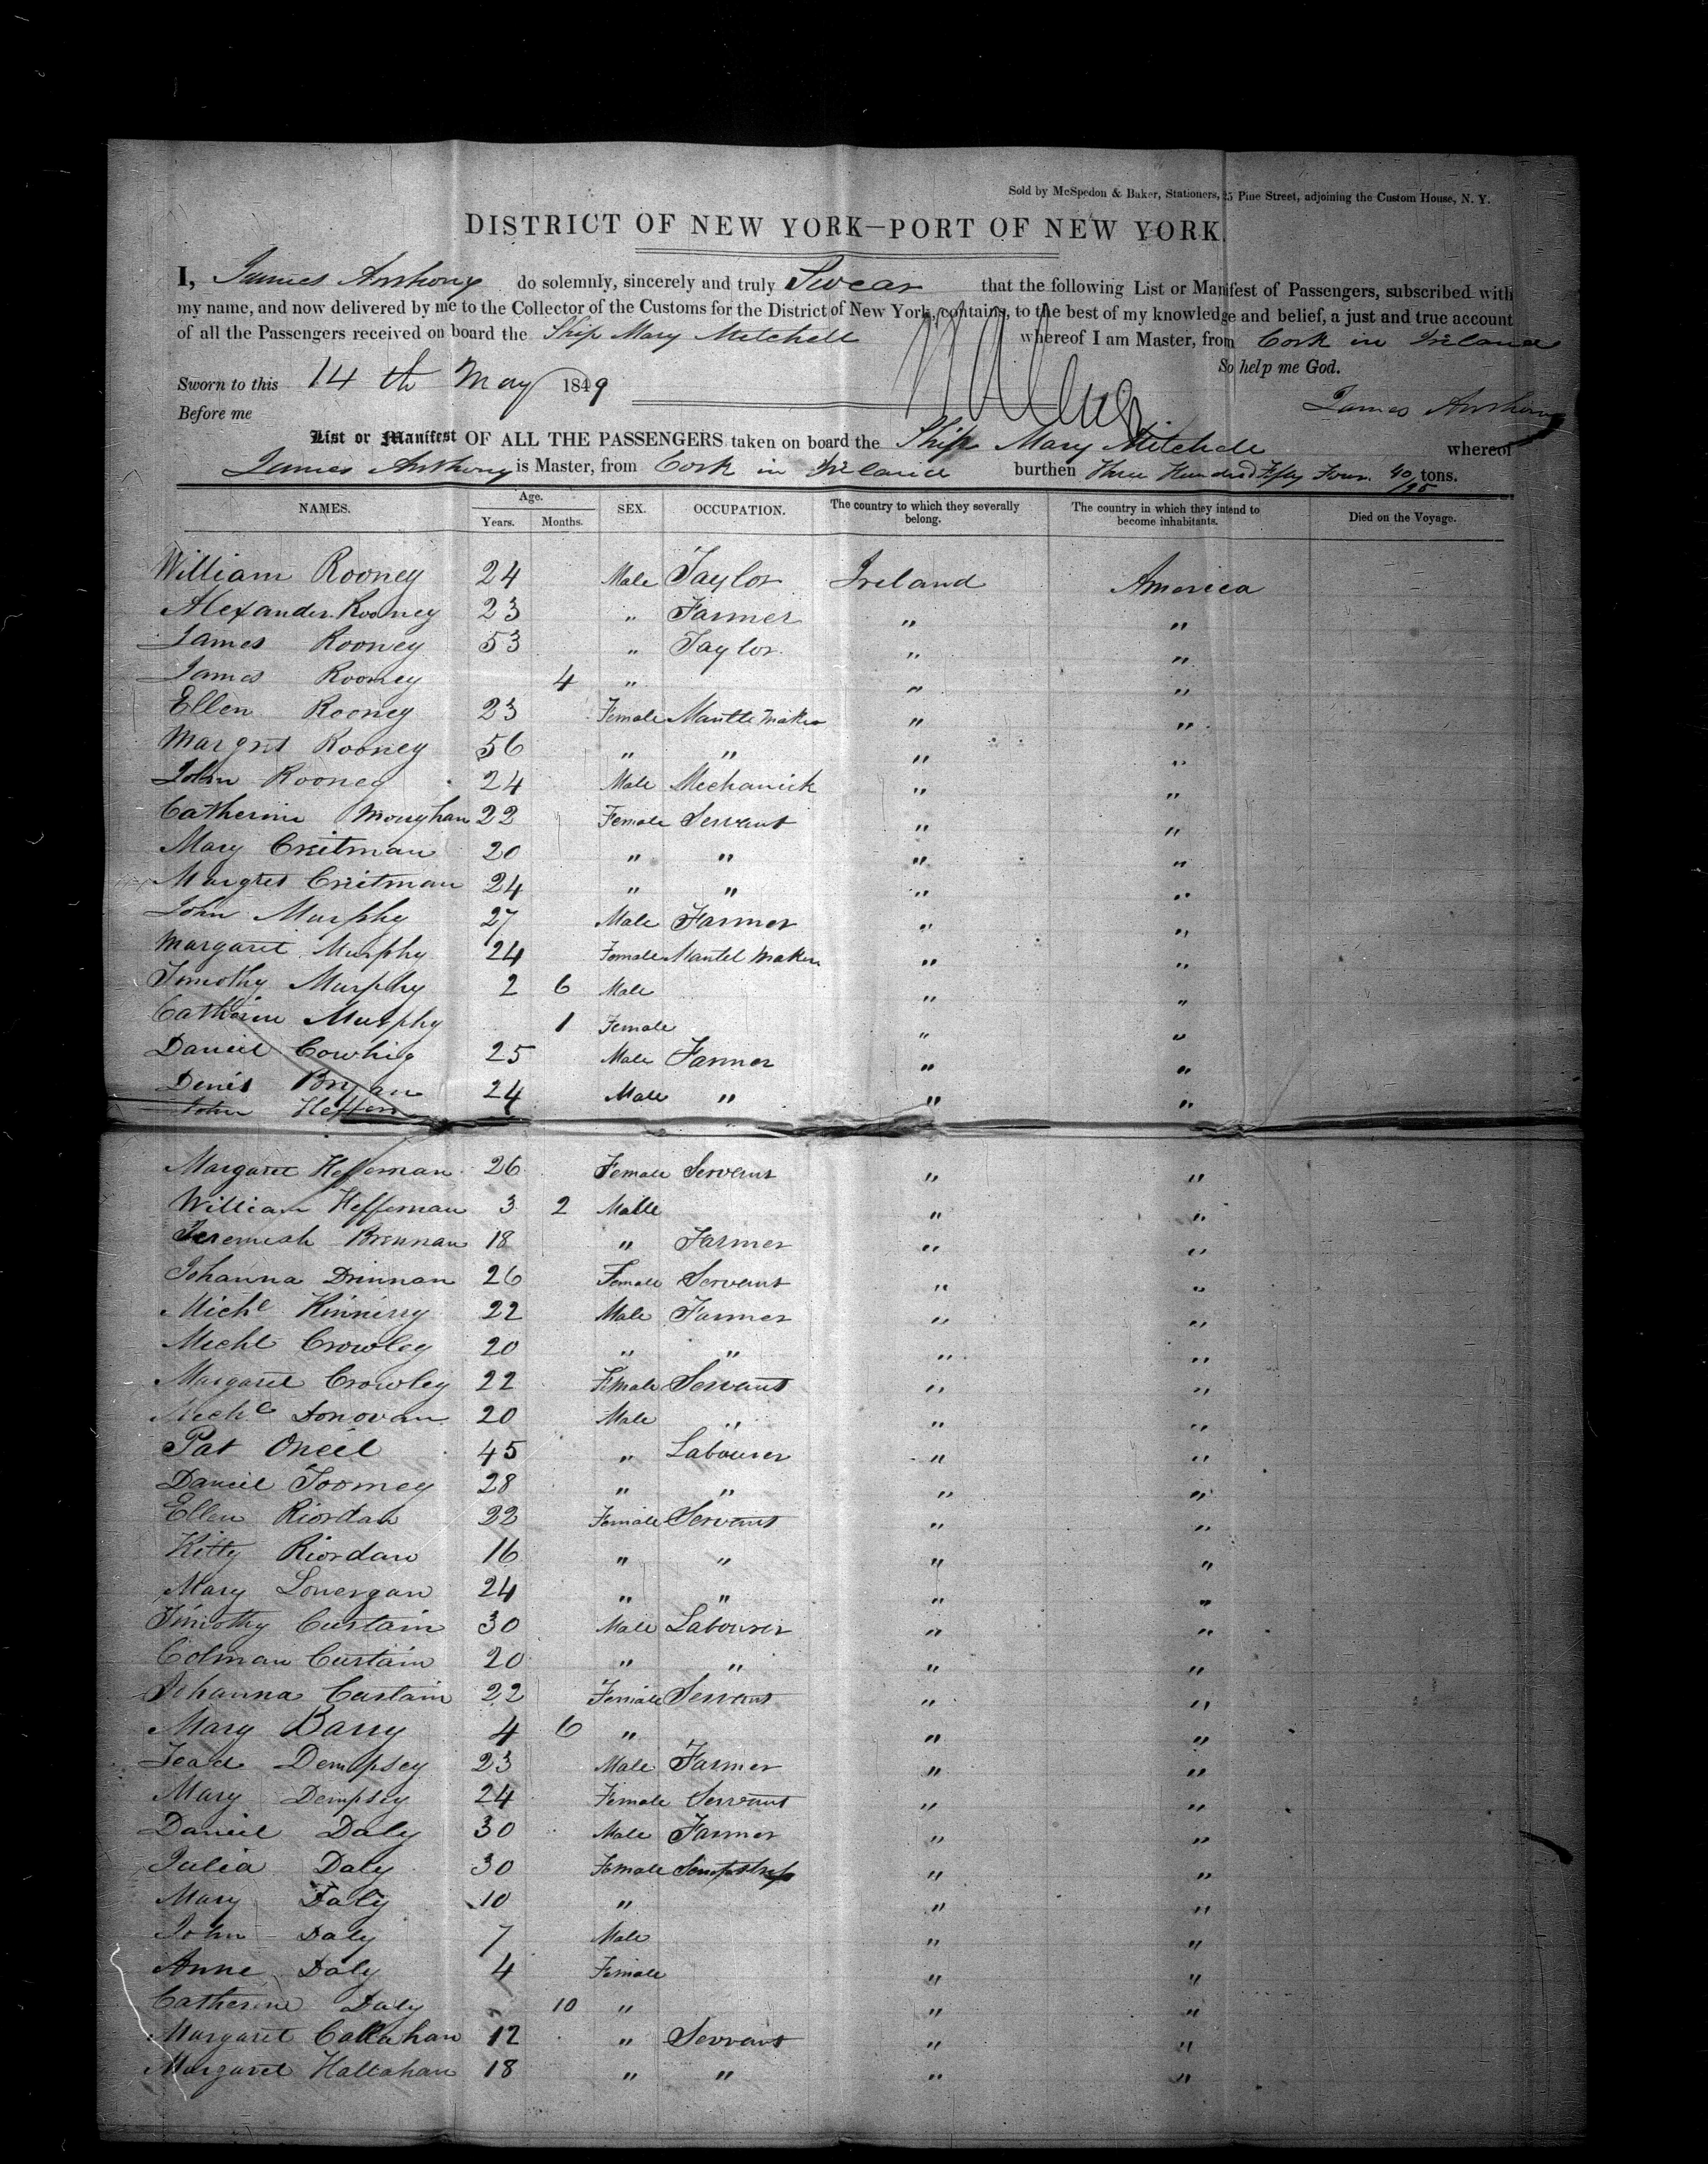 Sold by McSpedon & Baker, Stationers, 25 Pine Street, adjoining the Custom House, N. Y.
DISTRICT OF NEW YORK—PORT OF NEW YORK.
I, James Anthony do solemnly, sincerely and truly Swear that the following List or Manifest of Passengers, subscribed with
my name, and now delivered by me to the Collector of the Customs for the District of New York, contains, to the best of my knowledge and belief, a just and true account
of all the Passengers received on board the Ship Mary Mitchell whereof I am Master, from Cork in Ireland
So help me God.
Sworn to this 14 th May 1849
James Anthony
Before me
List or Manifest OF ALL THE PASSENGERS taken on board the Ship Mary Mitchell whereof
James Anthony is Master, from Cork in Ireland burthen Three Hundred Fifty Four 40/95 tons.
NAMES. Age. Years. Months. SEX. OCCUPATION. The country to which they severally belong. The country in which they intend to become inhabitants. Died on the Voyage.
William Rooney 24 Male Taylor Ireland America
Alexander Rooney 23 " Farmer " "
James Rooney 53 " Taylor " "
James Rooney 4 " " "
Ellen Rooney 23 Female Mantle Maker " "
Margrit Rooney 56 " " " "
John Rooney 24 Male Mechanick " "
Catherine 22 Female Servant " "
Mary Creitman 20 " " " "
Margret Creitman 24 " " " "
John Murphy 27 Male Farmer " "
Margaret Murphy 24 Female Mantel Maker " "
Timothy Murphy 2 6 Male " "
Catherine Murphy 1 Female " "
Daniel Cowhig 25 Male Farmer " "
Denis Bryan 24 Male " " "
John
Margaret Heffernan 26 Female Servant " "
William Heffernan 3 2 Male " "
Jeremiah Brennan 18 " Farmer " "
Johanna Drinnan 26 Female Servant " "
Michl Kinnirry 22 Male Farmer " "
Michl Crowley 20 " " " "
Margaret Crowley 22 Female Servant " "
Michl Donovan 20 Male " " "
Pat Oneil 45 " Labourer " "
Daniel Toomey 28 " " " "
Ellen Riordan 22 Female Servant " "
Kitty Riordan 16 " " " "
Mary Lonergan 24 " " " "
Timothy Curtain 30 Male Labourer " "
Colman Curtain 20 " " " "
Johanna Curtain 22 Female Servant " "
Mary Barry 4 6 " " "
Dempsey 23 Male Farmer " "
Mary Dempsey 24 Female Servant " "
Daniel Daly 30 Male Farmer " "
Julia Daly 30 Female Sempstress " "
Mary Daly 10 " " "
John Daly 7 Male " "
Anne Daly 4 Female " "
Catherine Daly " 10 " " "
Margaret Callahan 12 " Servant " "
Margaret Hallahan 18 " " " "